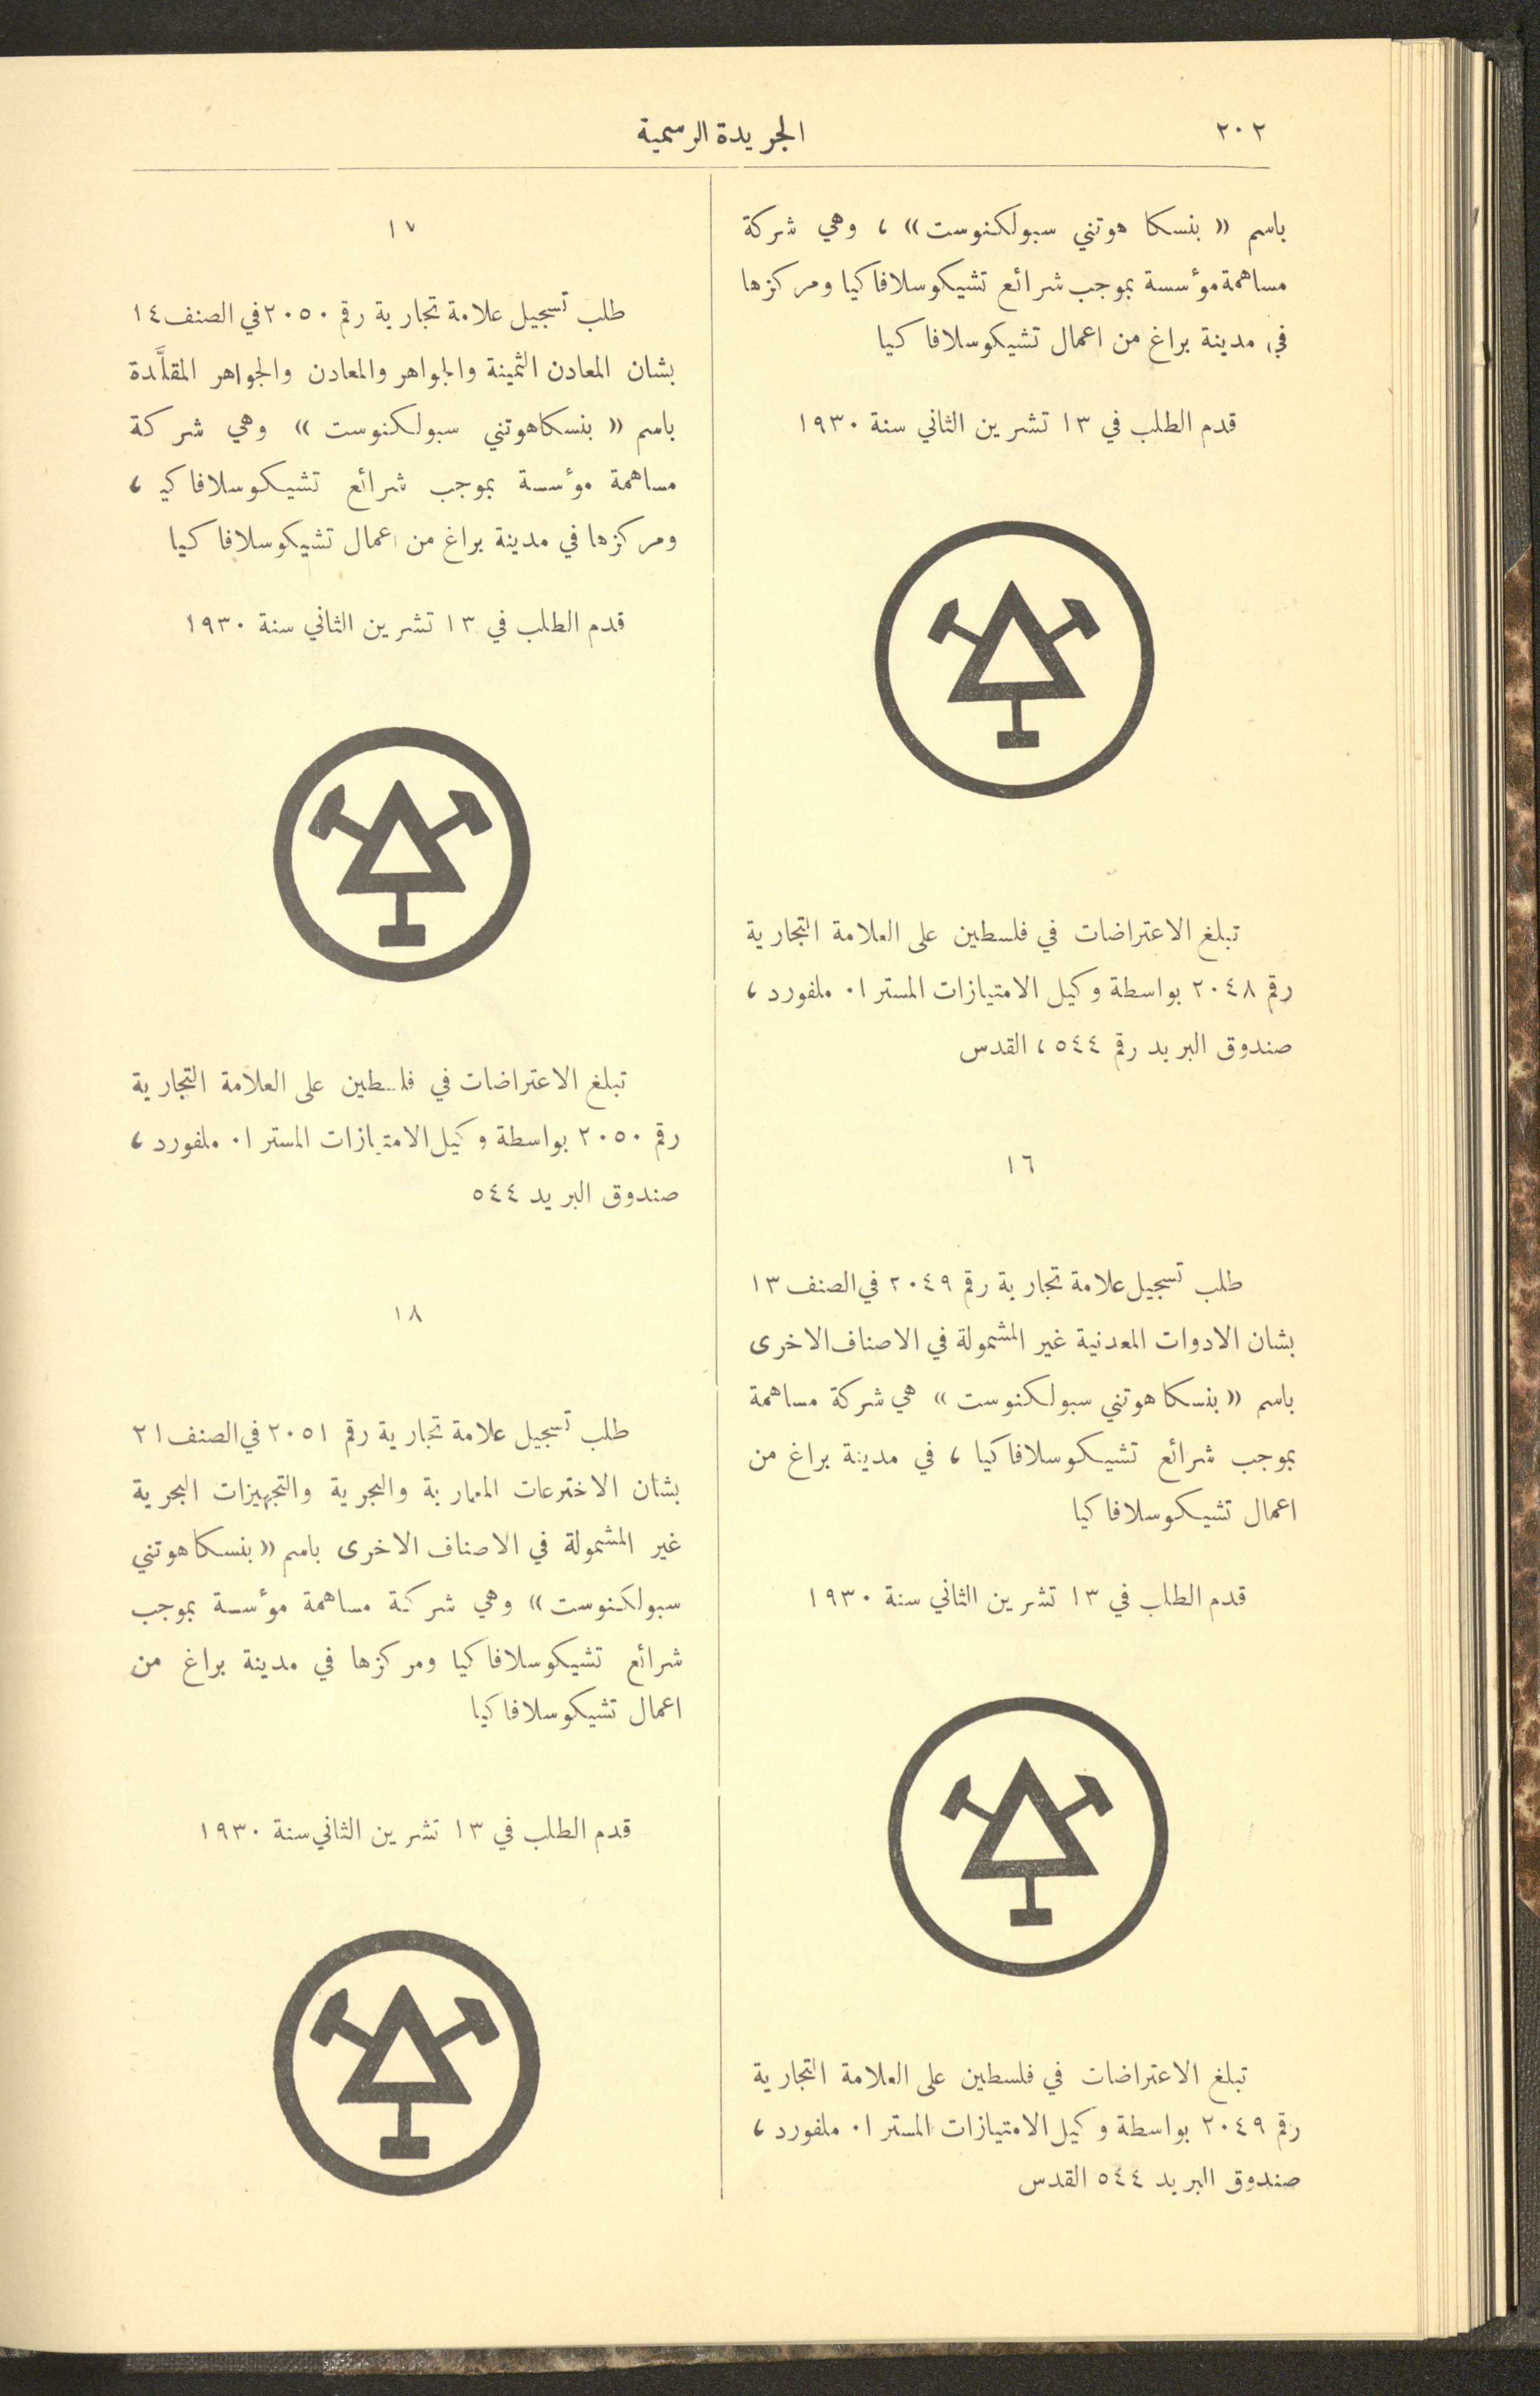 ٢٠٢
الجريدة الرسمية
باسم « بنسكا هوتني سبولكنوست» ، وهي شركة
مساهمة مؤسسة بموجب شرائع تشيكوسلافاكيا ومركزها
في مدينة براغ من اعمال تشيكوسلافاكيا
قدم الطلب في ١٣ تشرين الثاني سنة ١٩٣٠
تبلغ الاعتراضات في فلسطين على العلامة التجارية
رقم ٢٠٤٨ بواسطة وكيل الامتيازات المستر ا. ملفورد ،
صندوق البريد رقم ٥٤٤ ، القدس
١٦
طلب تسجيل علامة تجارية رقم ٢٠٤٩ في الصنف ١٣
بشان الادوات المعدنية غير المشمولة في الاصناف الاخرى
باسم « بنسكا هوتني سبولكنوست » هي شركة مساهمة
بموجب شرائع تشيكوسلافاكيا ، في مدينة براغ من
اعمال تشيكوسلافاكيا
قدم الطلب في ١٣ تشرين الثاني سنة ١٩٣٠
تبلغ الاعتراضات في فلسطين على العلامة التجارية
رقم ٢٠٤٩ بواسطة وكيل الامتيازات المستر ا. ملفورد ،
صندوق البريد ٥٤٤ القدس
١٧
طلب تسجيل علامة تجارية رقم ٢٠٥٠ في الصنف ١٤
بشان المعادن الثمينة والجواهر والمعادن والجواهر المقلَّدة
باسم « بنسكاهوتني سبولكنوست » وهي شركة
مساهمة مؤسسة بموجب شرائع تشيكوسلافاكيـ ،
ومركزها في مدينة براغ من اعمال تشيكوسلافاكيا
قدم الطلب في ١٣ تشرين الثاني سنة ١٩٣٠
تبلغ الاعتراضات في فلسطين على العلامة التجارية
رقم ٢٠٥٠ بواسطة وكيل الامتيازات المستر ا. ملفورد ،
صندوق البريد ٥٤٤
١٨
طلب تسجيل علامة تجارية رقم ٢٠٥١ في الصنف ٢١
بشان الاخترعات المعمارية والبحرية والتجهيزات البحرية
غير المشمولة في الاصناف الاخرى باسم « بنسكا هوتني
سبولكنوست» وهي شركة مساهمة مؤسسة بموجب
شرائع تشيكوسلافاكيا ومركزها في مدينة براغ من
اعمال تشيكوسلافاكيا
قدم الطلب في ١٣ تشرين الثاني سنة ١٩٣٠